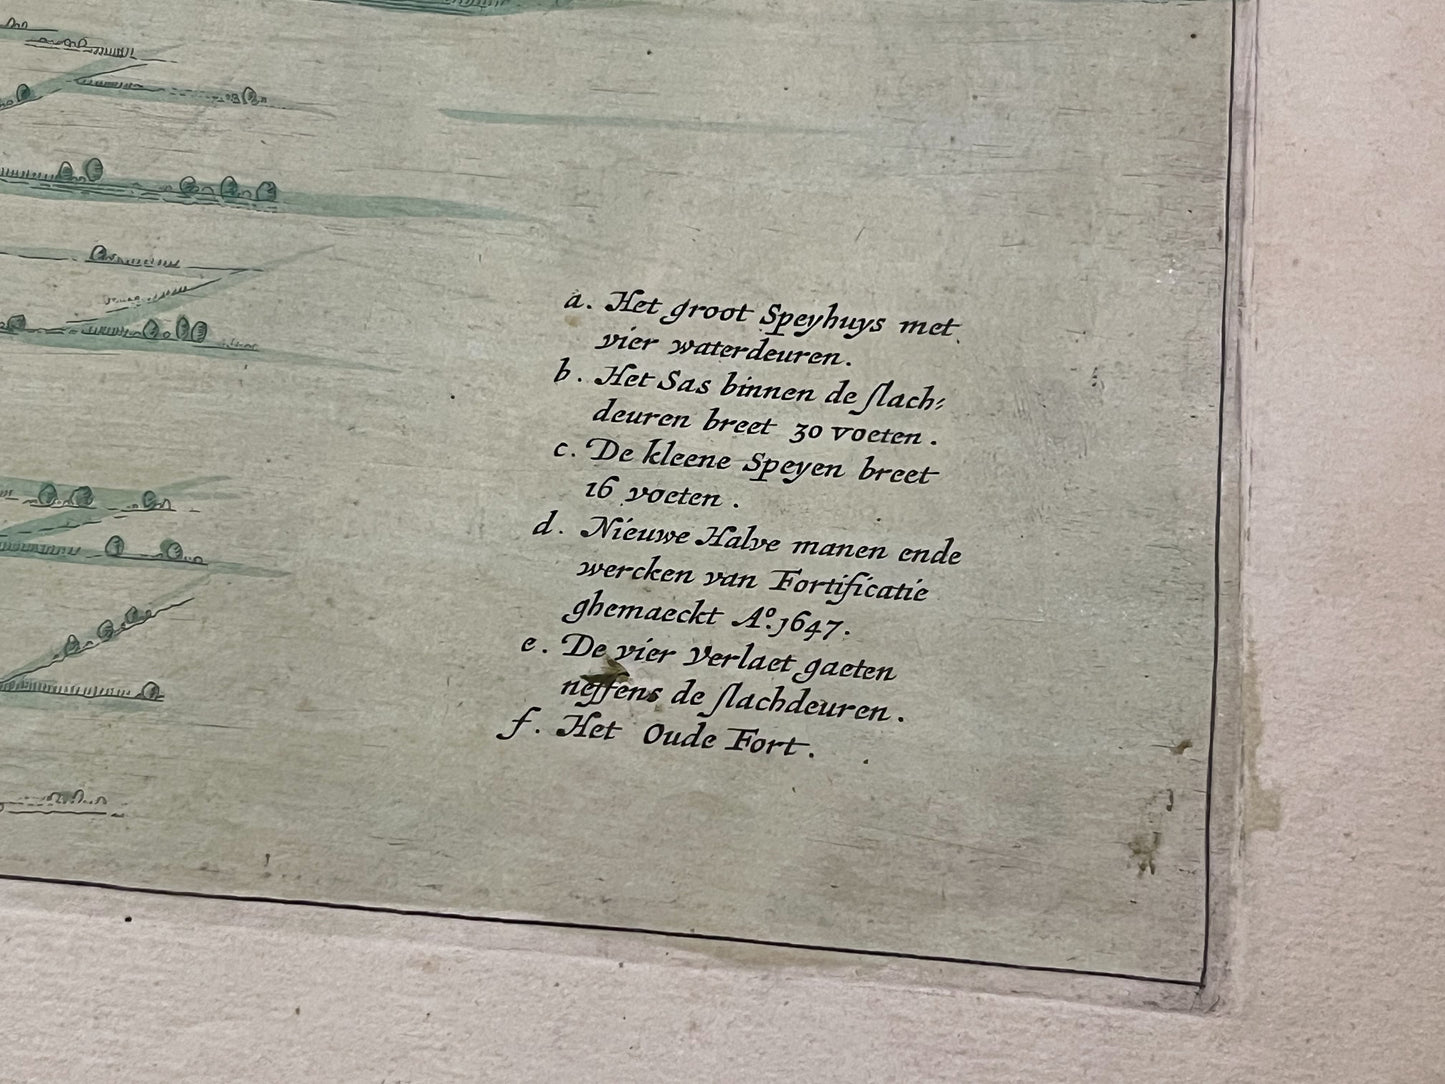 a. Het groot Speyhuys met
vier waterdeuren.
b. Het Sas binnen de ſlach⸗
deuren breet 30 voeten.
c. De kleene Speyen breet
16 voeten.
d. Nieuwe Halve manen ende
wercken van Fortificatie
ghemaeckt Aº. 1647.
e. De vier Verlaet gaeten
neffens de ſlachdeuren.
f. Het Oude Fort.